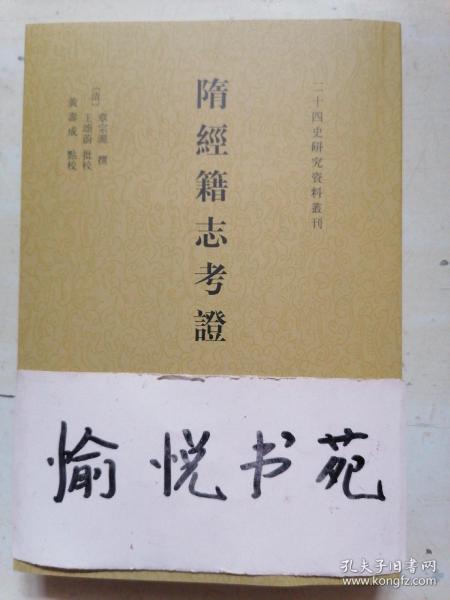 二十四史研究資料叢刊
隋經籍志考證
〔清〕章宗源 撰
王頌蔚 批校
黃壽成 點校
愉悦书苑
孔夫子旧书网
www.kongfz.com